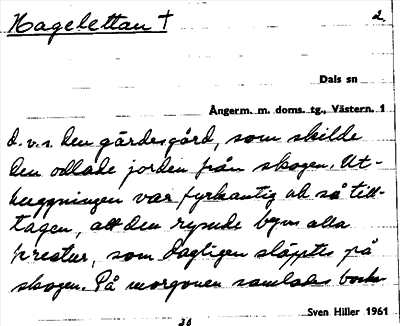 Hagelettan † 2.
Dals sn
Ångerm. m. doms. tg., Västern. 1
d.v.s. den gärdesgård, som skilde
den odlade jorden från skogen. Ut-
huggningen var fyrkantig ok så till-
tagen, att den rymde byns alla
kreatur, som dagligen släpptes på
skogen. På morgonen samlades
Sven Hiller 1961
30